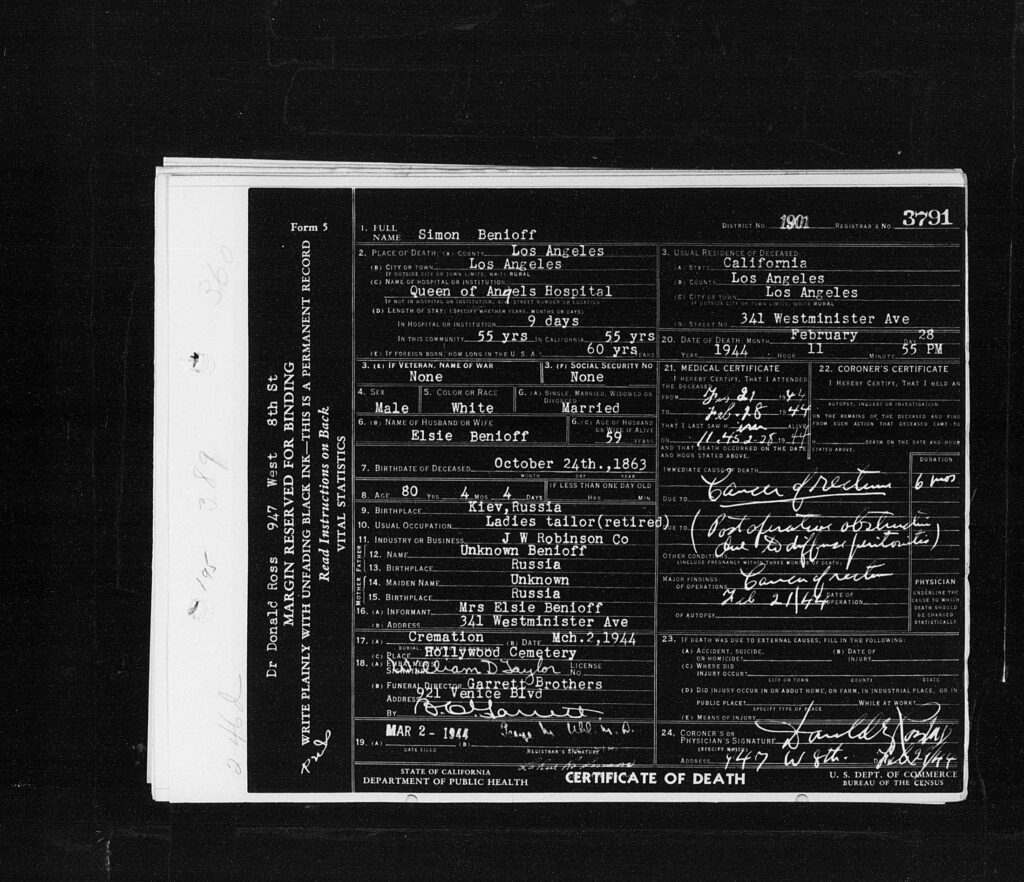 Form 5
Dr Donald Ross 947 West 8th St
MARGIN RESERVED FOR BINDING
WRITE PLAINLY WITH UNFADING BLACK INK—THIS IS A PERMANENT RECORD
Read Instructions on Back
VITAL STATISTICS
DISTRICT NO. 1901 REGISTRAR'S NO. 3791
1. FULL NAME Simon Benioff
2. PLACE OF DEATH: (A) COUNTY Los Angeles
(B) CITY OR TOWN Los Angeles
IF OUTSIDE CITY OR TOWN LIMITS, WRITE RURAL
(C) NAME OF HOSPITAL OR INSTITUTION
Queen of Angels Hospital
IF NOT IN HOSPITAL OR INSTITUTION, GIVE STREET NUMBER OR LOCATION
(D) LENGTH OF STAY: (SPECIFY WHETHER YEARS, MONTHS OR DAYS)
IN HOSPITAL OR INSTITUTION 9 days
IN THIS COMMUNITY 55 yrs IN CALIFORNIA 55 yrs
(E) IF FOREIGN BORN, HOW LONG IN THE U. S. A. 60 yrs YEARS
3. (E) IF VETERAN, NAME OF WAR None
3. (F) SOCIAL SECURITY NO None
4. SEX Male
5. COLOR OR RACE White
6. (A) SINGLE, MARRIED, WIDOWED OR DIVORCED Married
6. (B) NAME OF HUSBAND OR WIFE Elsie Benioff
6. (C) AGE OF HUSBAND OR WIFE IF ALIVE 59 YEARS
7. BIRTHDATE OF DECEASED October 24th.,1863
MONTH DAY YEAR
8. AGE 80 YRS 4 MOS 4 DAYS IF LESS THAN ONE DAY OLD HRS MIN
9. BIRTHPLACE Kiev,Russia
10. USUAL OCCUPATION Ladies tailor(retired)
11. INDUSTRY OR BUSINESS J W Robinson Co
FATHER
12. NAME Unknown Benioff
13. BIRTHPLACE Russia
MOTHER
14. MAIDEN NAME Unknown
15. BIRTHPLACE Russia
16. (A) INFORMANT Mrs Elsie Benioff
(B) ADDRESS 341 Westminister Ave
17. (A) Cremation (B) DATE Mch.2,1944
(C) PLACE Hollywood Cemetery
18. (A) EMBALMER'S SIGNATURE William D Taylor LICENSE NO
(B) FUNERAL DIRECTOR Garrett Brothers
ADDRESS 921 Venice Blvd
BY B. O. Garrett
19. (A) MAR 2 - 1944
DATE FILED REGISTRAR'S SIGNATURE
3. USUAL RESIDENCE OF DECEASED
(A) STATE California
(B) COUNTY Los Angeles
(C) CITY OR TOWN Los Angeles
IF OUTSIDE CITY OR TOWN LIMITS, WRITE RURAL
(D) STREET NO 341 Westminister Ave
20. DATE OF DEATH: MONTH February DAY 28
YEAR 1944 HOUR 11 MINUTE 55 PM
21. MEDICAL CERTIFICATE
I HEREBY CERTIFY, THAT I ATTENDED
THE DECEASED
FROM Feb 21 1944
TO Feb-28 1944
THAT I LAST SAW H im ALIVE
ON 11.45 2-28 1944
AND THAT DEATH OCCURRED ON THE DATE AND HOUR STATED ABOVE.
22. CORONER'S CERTIFICATE
I HEREBY CERTIFY, THAT I HELD AN
AUTOPSY, INQUEST OR INVESTIGATION
ON THE REMAINS OF THE DECEASED AND FIND
FROM SUCH ACTION THAT DECEASED CAME TO
H DEATH ON THE DATE AND HOUR
STATED ABOVE.
IMMEDIATE CAUSE OF DEATH
DURATION
Cancer of rectum 6 mos
DUE TO
DUE TO (Post operative obstruction
due to diffuse peritonitis)
OTHER CONDITIONS
(INCLUDE PREGNANCY WITHIN THREE MONTHS OF DEATH)
MAJOR FINDINGS
OF OPERATION Cancer of rectum
Feb 21/44 DATE OF OPERATION
OF AUTOPSY
PHYSICIAN
UNDERLINE THE CAUSE TO WHICH DEATH SHOULD BE CHARGED STATISTICALLY
23. IF DEATH WAS DUE TO EXTERNAL CAUSES, FILL IN THE FOLLOWING:
(A) ACCIDENT, SUICIDE, OR HOMICIDE? (B) DATE OF INJURY
(C) WHERE DID INJURY OCCUR?
CITY OR TOWN COUNTY STATE
(D) DID INJURY OCCUR IN OR ABOUT HOME, ON FARM, IN INDUSTRIAL PLACE, OR IN
PUBLIC PLACE? WHILE AT WORK?
SPECIFY TYPE OF PLACE
(E) MEANS OF INJURY
24. CORONER'S OR PHYSICIAN'S SIGNATURE Donald E Ross
(SPECIFY WHICH)
ADDRESS 947 W 8th.
STATE OF CALIFORNIA
DEPARTMENT OF PUBLIC HEALTH
CERTIFICATE OF DEATH
U. S. DEPT. OF COMMERCE
BUREAU OF THE CENSUS